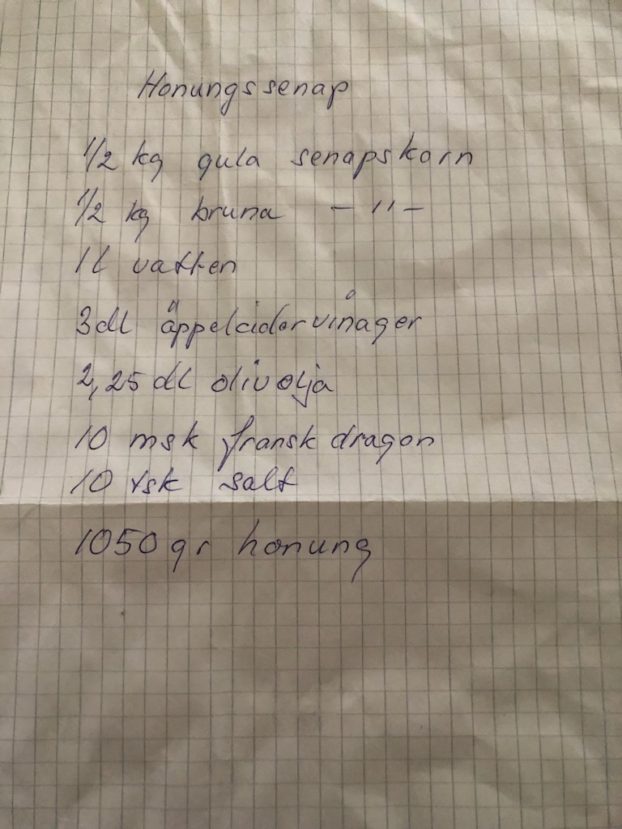 Honungssenap
1/2 kg gula senapskorn
1/2 kg bruna – " –
1 l vatten
3 dl äppelcidervinäger
2,25 dl olivolja
10 msk fransk dragon
10 tsk salt
1050 gr honung